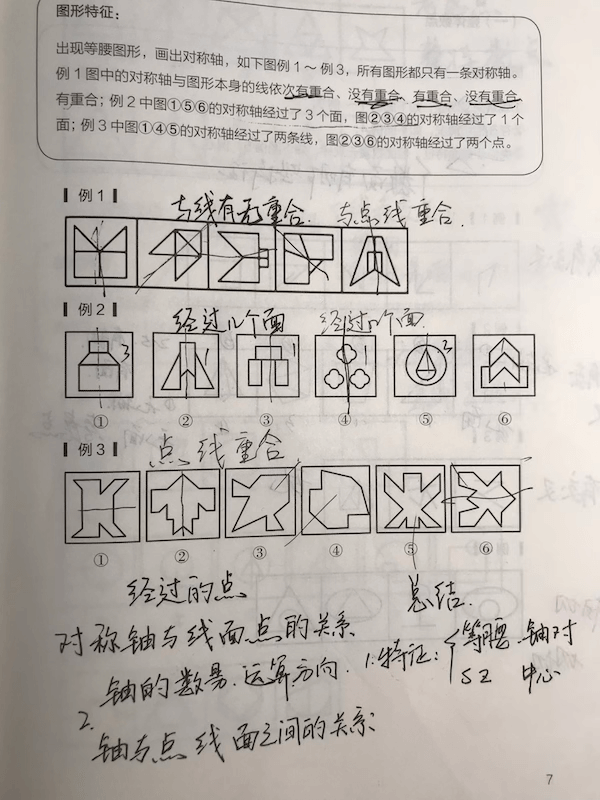 图形特征：
出现等腰图形，画出对称轴，如下图例 1～例 3，所有图形都只有一条对称轴。
例 1 图中的对称轴与图形本身的线依次有重合、没有重合、有重合、没有重合、
有重合；例 2 中图①⑤⑥的对称轴经过了 3 个面，图②③④的对称轴经过了 1 个
面；例 3 中图①④⑤的对称轴经过了两条线，图②③⑥的对称轴经过了两个点。
例 1
与线有无重合. 与点线重合.
例 2
经过几个面 经过几个面.
3 1 1 1 3
① ② ③ ④ ⑤ ⑥
例 3
点线重合
① ② ③ ④ ⑤ ⑥
经过的点 总结.
对称轴与线面点的关系
轴的数量.运算方向. 1.特征: 等腰.轴对
SZ 中心
2.
轴与点线面之间的关系
7